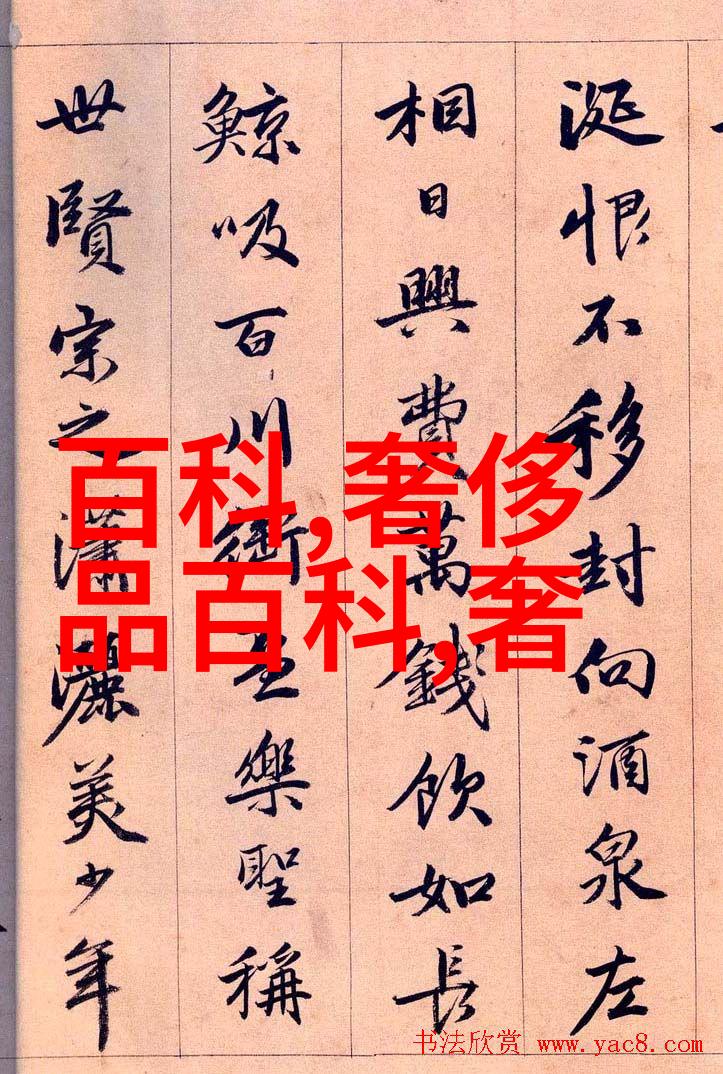 涎恨不移封向酒泉左
相日興費萬錢飲如長
鯨吸百川銜盃樂聖稱
世賢宗之瀟灑美少年
百科,奢侈
品百科,奢
书法欣赏 www.yac8.com